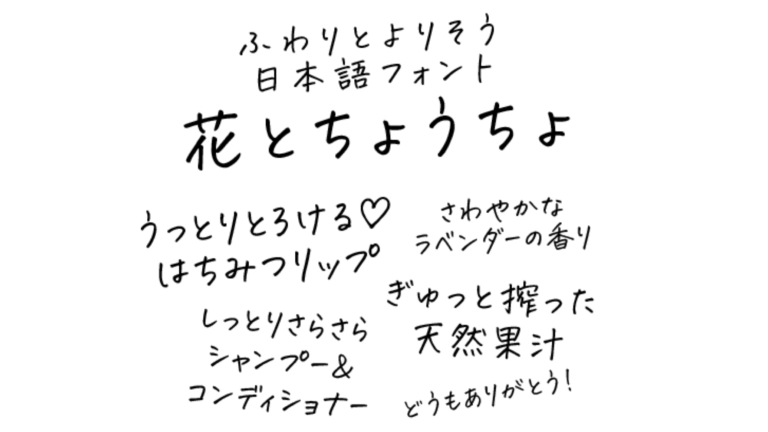 ふわりとよりそう
日本語フォント
花とちょうちょ
うっとりとろける♡
はちみつリップ
さわやかな
ラベンダーの香り
ぎゅっと搾った
天然果汁
しっとりさらさら
シャンプー&
コンディショナー
どうもありがとう!